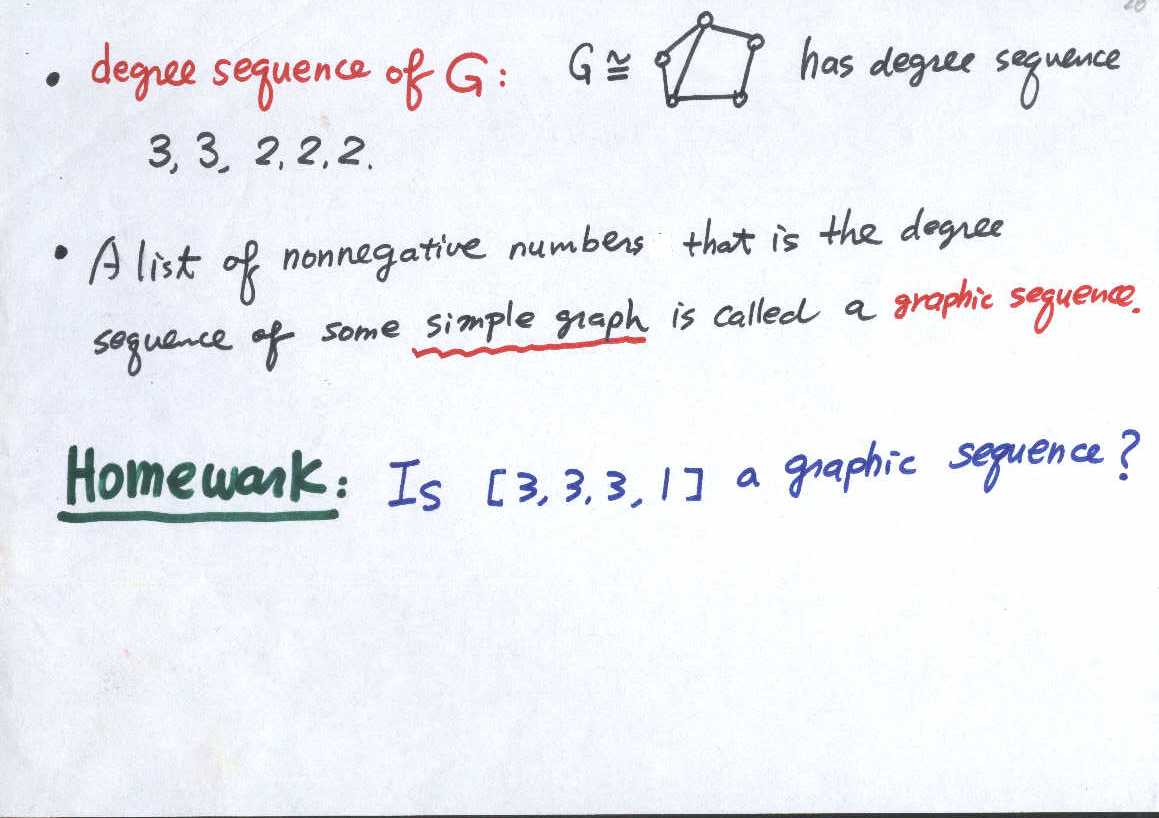 • degree sequence of G: G ≅ has degree sequence
3, 3, 2, 2, 2.
• A list of nonnegative numbers that is the degree
sequence of some simple graph is called a graphic sequence.
Homework: Is [3, 3, 3, 1] a graphic sequence?